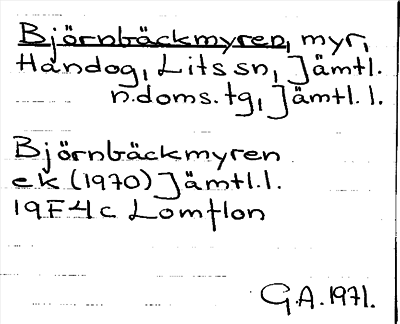 Björnbäckmyren, myr,
Handog, Lits sn, Jämtl.
n.doms.tg, Jämtl.l.
Björnbäckmyren
ek (1970) Jämtl.l.
19F4c Lomtlon
G.A. 1971.